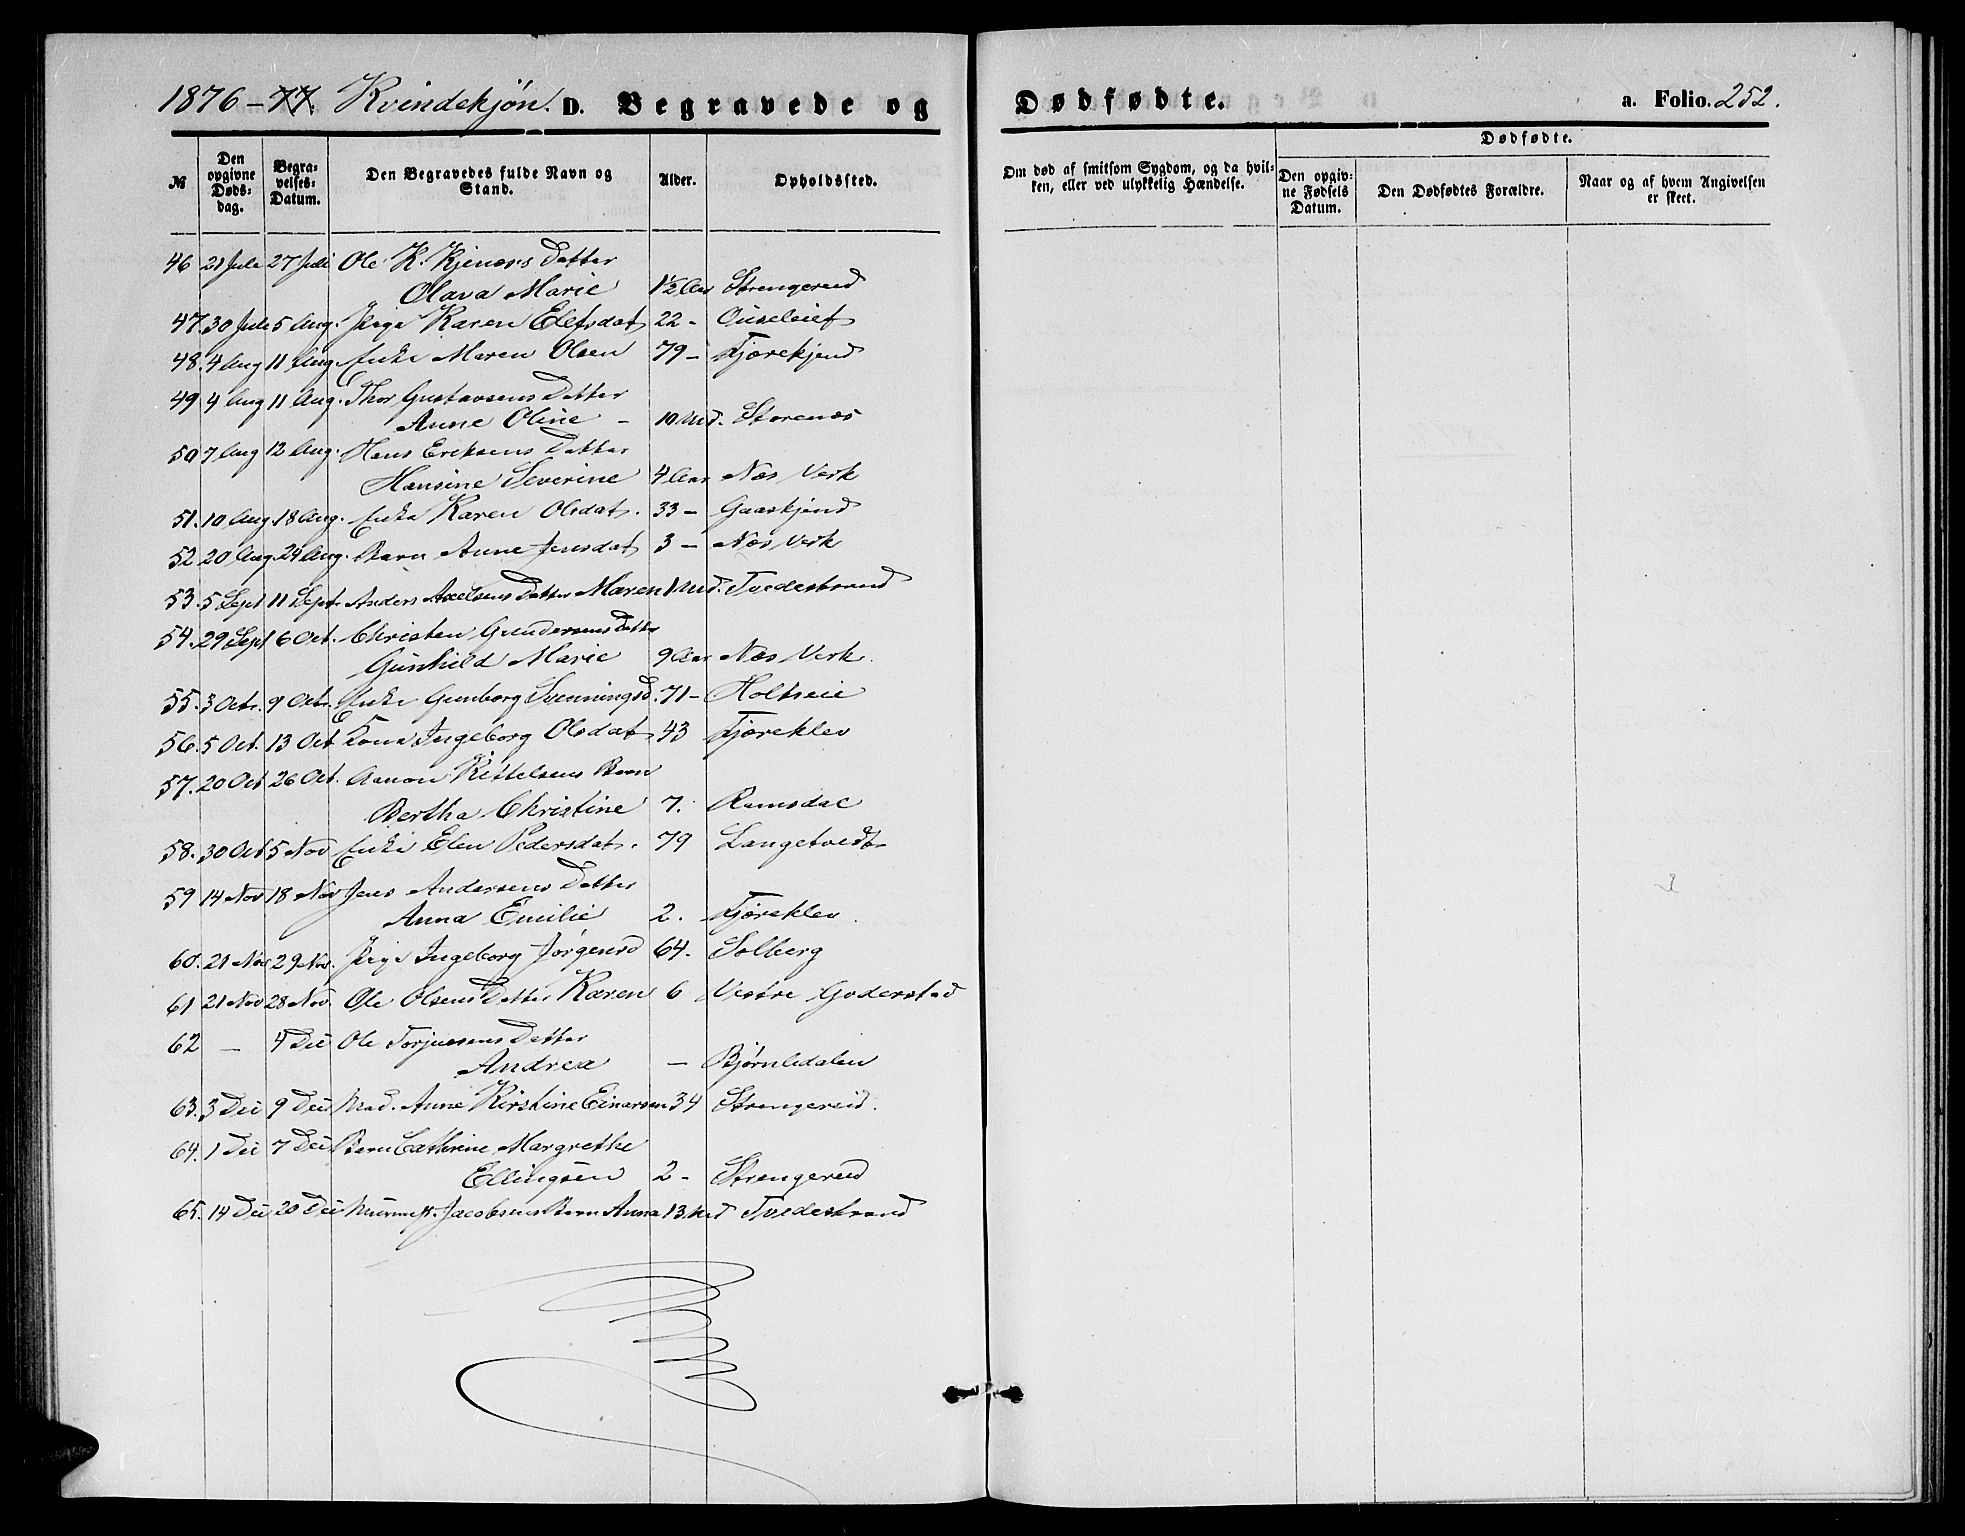 1876-77. Kvindekjøn. D. Begravede og Dødfødte. a. Folio. 252.
№ Den opgivne Døds-dag. Begra-velses-Datum. Den Begravedes fulde Navn og Stand. Alder. Opholdssted. Om død af smitsom Sygdom, og da hvil-ken, eller ved ulykkelig Hændelse. Dødfødte. Den opgiv-ne Fødsels Datum. Den Dødfødtes Forældre. Naar og af hvem Angivelsen er skeet.
46 21 Juli 27 Juli Ole K. Datter
Olava Marie 1½ Aar Strengereid
47. 30 Juli 5 Aug. Pige Karen 22 -
48. 4 Aug 11 Aug. Enke Maren Olsen 79 -
49 4 Aug 11 Aug. Thor Gustavsens Datter
Anne Oline - 10 Md. Storenæs
50 7 Aug 12 Aug. Hans Eriksens Datter
Hansine Severine 4 Aar Næs Verk
51. 10 Aug. 18 Aug. Enke Karen Olsdat. 33 -
52 20 Aug. 24 Aug. Barn Anne Jensdat 3 - Næs Verk
53. 5 Sept 11 Sept. Anders Axelsens Datter Maren 1 Md. Tvedestrand
54. 29 Sept 6 Oct. Christen Gundersens Datter
Gunhild Marie 9 Aar Næs Verk.
55. 3 Oct. 9 Oct. Enke Gunborg Svenningsd. 71 - Holtseie
56. 5 Oct. 13 Oct Kone Ingeborg Olsdat 43 Fjæreklev
57. 20 Oct 26 Oct. Aanon Kittelsens Barn
Bertha Christine 7. Ramsdal
58. 30 Oct 5 Nov Enke Elen Pedersdat. 79 Langetvedt
59 14 Nov 18 Nov Jens Andersens Datter
Anna Emilie 2. Fjæreklev.
60. 21 Nov 29 Nov. Pige Ingeborg Jørgensd 64. Solberg
61 21 Nov 28 Nov. Ole Olsens Datter Karen 6 Vestre Goderstad
62 - 4 Dec Ole Torjusens Datter
Andrea - Bjørnledalen
63. 3 Dec 9 Dec Mad. Anne Kirstine Einarsen 34 Strengereid.
64. 1 Dec 7 Dec Barn Cathrine Margrethe
Ellingsen 2 - Strengereid
65. 14 Dec 20 Dec Jacobsens Barn Anna 13 Md Tvedestrand